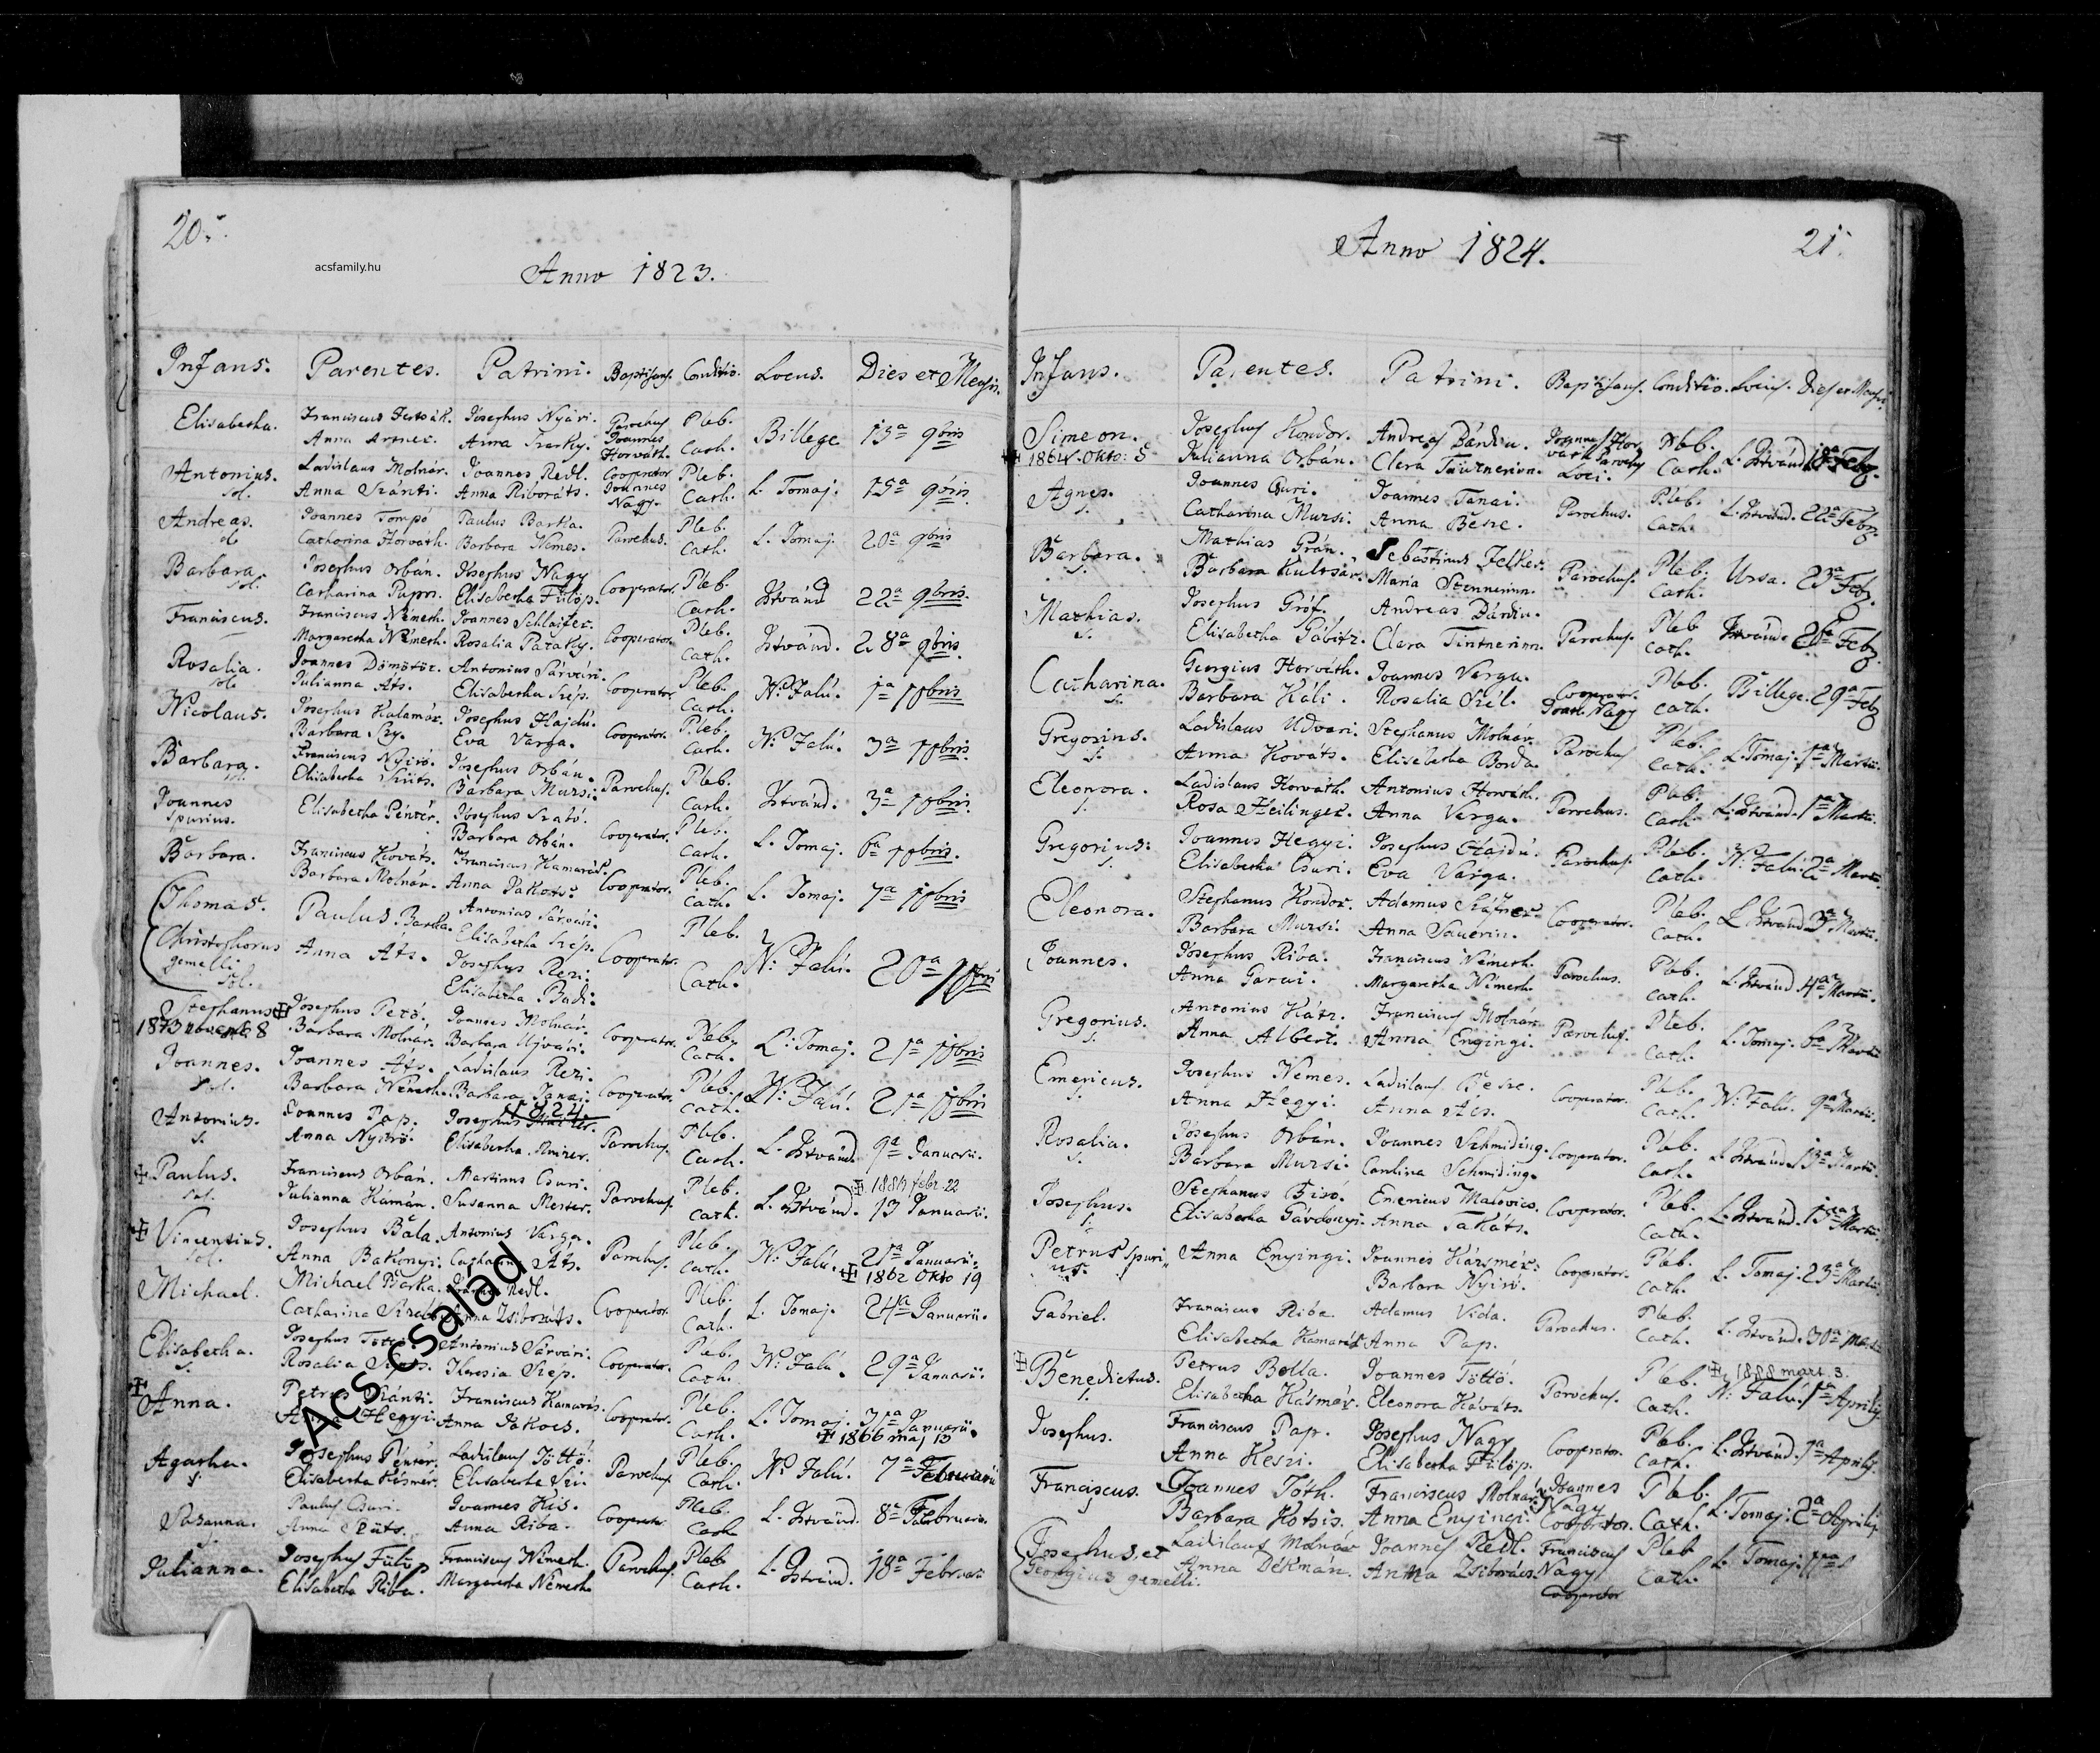 20.
acsfamily.hu
Anno 1823.
Infans. Parentes. Patrini. Baptisans. Conditio. Locus. Dies et Mensis.
Elisabetha. Franciscus Josephus Nyári. Parochus Pleb. Billege 13a 9bris
Anna Anna Joannes Horváth. Cath.
Antonius. Ladislaus Molnár. Joannes Redl. Cooperator Pleb. L. Tomaj. 15a 9bris
sol. Anna Szánti. Anna Joannes Nagy. Cath.
Andreas. Joannes Tompó Paulus Barka. Parochus. Pleb. L. Tomaj. 20a 9bris
Catharina Horváth. Barbara Nemes. Cath.
Barbara. Josephus Orbán. Josephus Nagy Cooperator. Pleb. Istvánd 22a 9bris
sol. Catharina Elisabetha Fülöp. Cath.
Franciscus. Franciscus Németh. Joannes Schlaifer. Cooperator. Pleb. Istvánd. 28a 9bris
Margaretha Németh. Rosalia Pataky. Cath.
Rosalia. Joannes Dömötör. Antonius Sárvári. Cooperator. Pleb. N. Falú. 1a
sol. Julianna Áts. Elisabetha Szép. Cath.
Nicolaus. Josephus Kalamár. Josephus Hajdú. Cooperator. Pleb. N. Falú. 3a
Barbara Eva Varga. Cath.
Barbara. Franciscus Nyírő. Josephus Orbán. Parochus. Pleb. Istvánd. 3a
sol. Elisabetha Szüts. Barbara Mursi. Cath.
Joannes Elisabetha Pénter. Josephus Szabó. Cooperator. Pleb. L. Tomaj. 6a
Spurius. Barbara Orbán. Cath.
Barbara. Franciscus Kováts. Franciscus Kamarás. Cooperator. Pleb. L. Tomaj. 7a
Barbara Molnár. Anna Takáts. Cath.
Thomas. Paulus Barka. Antonius Sárvári. Pleb.
Elisabetha Szép.
Christophorus Anna Áts. Josephus Rezi. Cooperator. Cath. N. Falú. 20a
gemelli Elisabetha Badi.
sol.
Stephanus Josephus Pető. Joannes Molnár. Cooperator. Pleb. L. Tomaj. 21a
1873 8 Barbara Molnár. Barbara Ujvári. Cath.
Joannes. Joannes Áts. Ladislaus Rezi. Cooperator. Pleb. N. Falú. 21a
sol. Barbara Németh. Barbara Tanai. Cath.
1824.
Antonius. Joannes Pap. Josephus Parochus. Pleb. L. Istvánd. 9a Januarii.
s. Anna Nyírő. Elisabetha Cath.
Paulus. Franciscus Orbán. Martinus Csuri. Parochus. Pleb. L. Istvánd. 13 Januarii.
sol. Julianna Kámán. Susanna Mester. Cath. febr. 22
Vincentius. Josephus Bála. Antonius Varga. Parochus. Pleb. N. Falú. 21a Januarii.
sol. Anna Bakonyi. Catharina Áts. Cath. 1862 Okto 19
Michael. Michael Barka. Joannes Redl. Cooperator. Pleb. L. Tomaj. 24a Januarii.
Catharina Szabó Anna Zsiboráts. Cath.
Elisabetha. Josephus Antonius Sárvári. Cooperator. Pleb. N. Falú. 29a Januarii.
s. Rosalia Theresia Szép. Cath.
Anna. Petrus Szánti. Franciscus Kamarás. Cooperator. Pleb. L. Tomaj. 31a Januarii.
Anna Hegyi. Anna Takács. Cath. 1866 maj 13
Agatha. Josephus Pénter. Ladislaus Töttő. Parochus. Pleb. N. Falú. 7a Februarii
s. Elisabetha Késmér. Elisabetha Cath.
Susanna. Paulus Csuri. Joannes Kis. Cooperator. Pleb. L. Istvánd. 8a Februarii.
Anna Szüts. Anna Riba. Cath.
Julianna. Josephus Fülöp Franciscus Németh. Parochus. Pleb. L. Istvánd. 18a Februarii
Elisabetha Riba. Margaretha Németh Cath.
Ács család
21.
Anno 1824.
Infans. Parentes. Patrini. Baptisans. Conditio. Locus. Dies et Mensis.
Simeon. Josephus Kondor. Andreas Bárdiu. Joannes Hor Pleb. L. Istvánd. 18a Febr.
Okto: 5 Julianna Orbán. Clara váth Parochus Loci. Cath.
Agnes. Joannes Csuri. Joannes Tanai. Parochus. Pleb. L. Istvánd. 22a Febr.
s. Catharina Mursi. Anna Besze. Cath.
Barbara. Mathias Prán. Sebastinus Zelker. Parochus. Pleb. Ursa. 23a Febr.
s. Barbara Kultsár. Maria Cath.
Mathias. Josephus Gróf. Andreas Bárdiu. Parochus. Pleb Istvánd. 26a Febr.
s. Elisabetha Gábitz. Clara Tintnerinn. Cath.
Catharina. Georgius Horváth. Joannes Varga. Cooperator. Pleb. Billege. 29a Febr
s. Barbara Káli. Rosalia Szél. Joan. Nagy Cath.
Gregorius. Ladislaus Udvari. Stephanus Molnár. Parochus Pleb. L. Tomaj. 1a Martii.
s. Anna Kováts. Elisabetha Borda. Cath.
Eleonora. Ladislaus Horváth. Antonius Horváth. Parochus. Pleb. L. Istvánd. 1a Martii.
s. Rosa Heilinger. Anna Varga. Cath.
Gregorius. Joannes Hegyi. Josephus Hajdú. Parochus. Pleb. N. Falú. 2a Martii.
s. Elisabetha Csuri. Eva Varga. Cath.
Eleonora. Stephanus Kondor. Adamus Cooperator. Pleb. L. Istvánd. 3a Martii.
Barbara Mursi. Anna Sauerin. Cath.
Joannes. Josephus Riba. Franciscus Németh. Parochus. Pleb. L. Istvánd. 4a Martii.
Anna Garai. Margaretha Németh. Cath.
Gregorius. Antonius Kátz. Franciscus Molnár. Parochus. Pleb. L. Tomaj. 6a Martii
s. Anna Albert. Anna Engingi. Cath.
Emericus. Josephus Nemes. Ladislaus Besze. Cooperator. Pleb. N. Falú. 9a Martii.
s. Anna Hegyi. Anna Ács. Cath.
Rosalia. Josephus Orbán. Joannes Schmiding. Cooperator. Pleb. L. Istvánd. 13a Martii.
s. Barbara Mursi. Carolina Schmiding. Cath.
Josephus. Stephanus Biró. Emericus Matovics. Cooperator. Pleb. L. Istvánd. 15a Martii.
s. Elisabetha Gárdonyi. Anna Takáts. Cath.
Petrus spuri Anna Enyingi. Joannes Kázmér. Cooperator. Pleb. L. Tomaj. 23a Martii.
us. Barbara Nyirő. Cath.
Gabriel. Franciscus Riba Adamus Vida. Parochus. Pleb. L. Istvánd. 30a Martii
Elisabetha Kamarás Anna Pap. Cath.
Benedictus. Petrus Bolla. Joannes Töttő. Parochus. Pleb. N. Falú. 1a Aprilis.
s. Elisabetha Kásmér. Eleonora Kováts. Cath. 1888 mart. 3.
Josephus. Franciscus Pap. Josephus Nagy Cooperator. Pleb. L. Istvánd. 1a Aprilis.
Anna Keszi. Elisabetha Fülöp. Cath.
Franciscus. Joannes Tóth. Franciscus Molnár. Joannes Nagy Pleb. L. Tomaj. 2a Aprilis
s. Barbara Kotsis. Anna Enyingi. Cooperator. Cath.
Josephus et Ladislaus Molnár Joannes Redl. Franciscus Pleb L. Tomaj.
Georgius gemelli. Anna Dékmán. Anna Zsiborács. Nagy Cath.
Cooperator